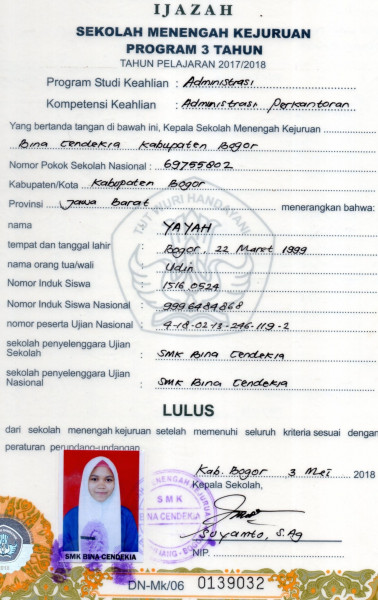 IJAZAH
SEKOLAH MENENGAH KEJURUAN
PROGRAM 3 TAHUN
TAHUN PELAJARAN 2017/2018
Program Studi Keahlian : Administrasi
Kompetensi Keahlian : Administrasi Perkantoran
Yang bertanda tangan di bawah ini, Kepala Sekolah Menengah Kejuruan
Bina Cendekia Kabupaten Bogor
Nomor Pokok Sekolah Nasional : 69755602
Kabupaten/Kota Kabupaten Bogor
Provinsi Jawa Barat menerangkan bahwa:
TUT WURI HANDAYANI
nama : YAYAH
tempat dan tanggal lahir : Bogor, 22 Maret 1999
nama orang tua/wali : Udin
Nomor Induk Siswa : 1516 0524
Nomor Induk Siswa Nasional : 9996484868
nomor peserta Ujian Nasional : 4-18-02-13-246-119-2
sekolah penyelenggara Ujian
Sekolah : SMK Bina Cendekia
sekolah penyelenggara Ujian
Nasional : SMK Bina Cendekia
LULUS
dari sekolah menengah kejuruan setelah memenuhi seluruh kriteria sesuai dengan
peraturan perundang-undangan
Kab. Bogor 3 Mei 2018
Kepala Sekolah,
MENENGAH KEJURUAN
SMK
BINA CENDEKIA
Suyamto, S.Ag
NIP.
SMK BINA CENDEKIA
DN-Mk/06 0139032